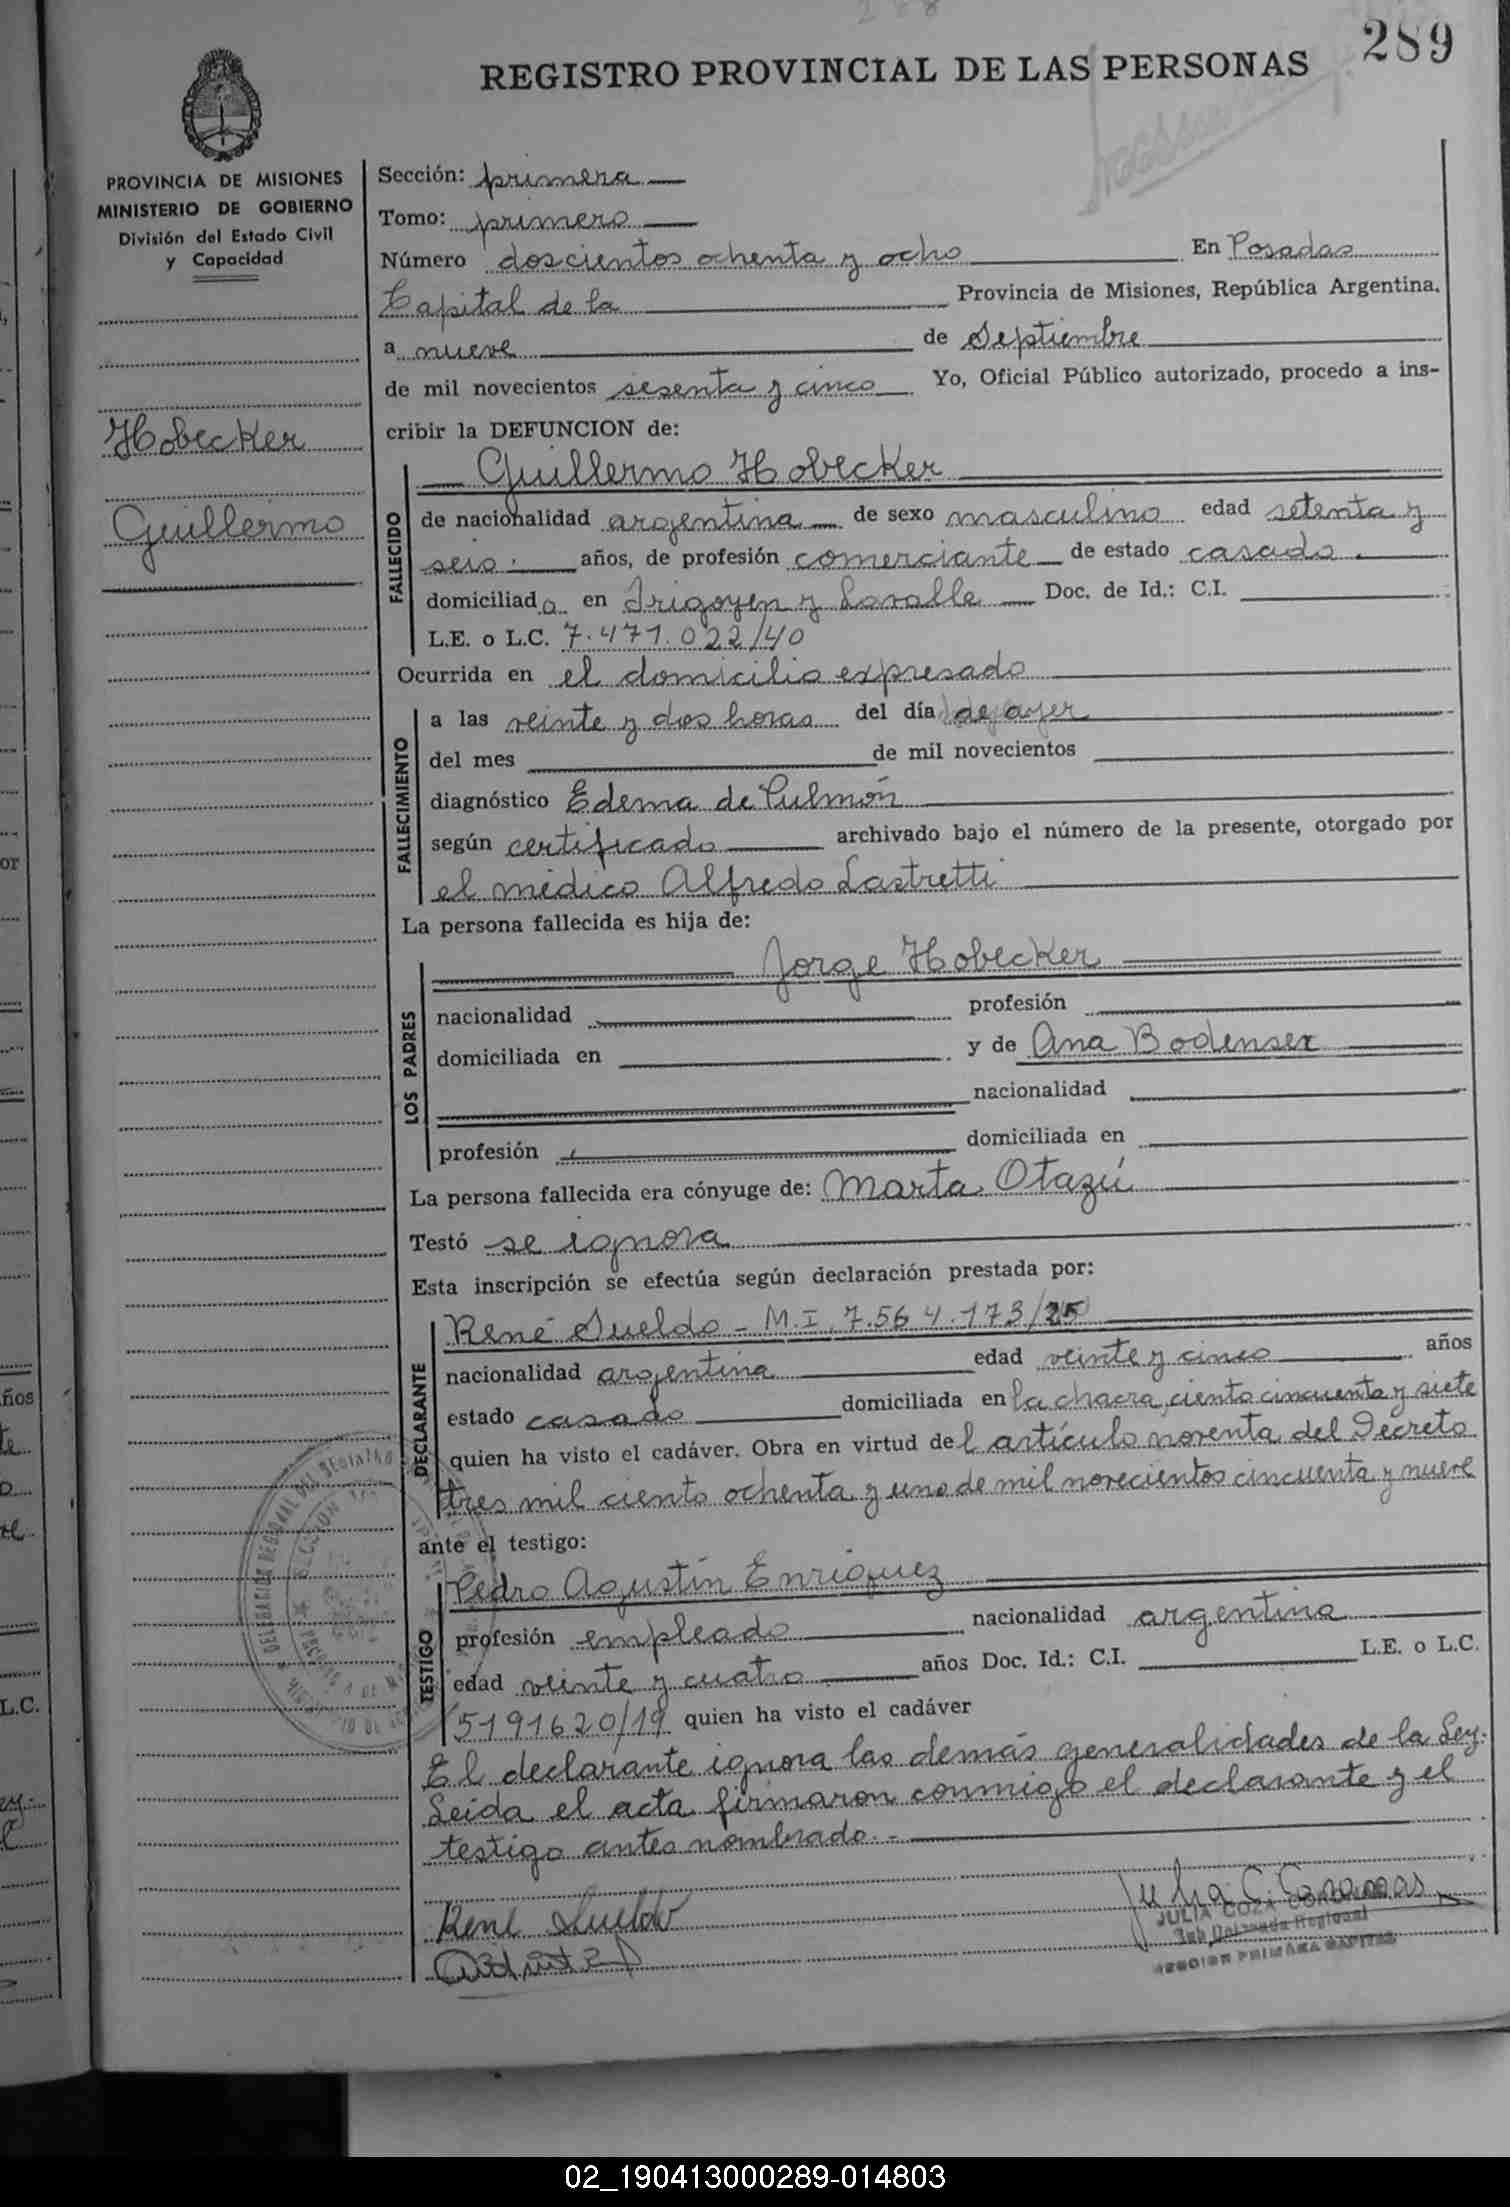 289
REGISTRO PROVINCIAL DE LAS PERSONAS
PROVINCIA DE MISIONES
MINISTERIO DE GOBIERNO
División del Estado Civil
y Capacidad
Hobecker
Guillermo
Sección: primera
Tomo: primero
Número doscientos ochenta y ocho En Posadas
Capital de la Provincia de Misiones, República Argentina.
a nueve de Septiembre
de mil novecientos sesenta y cinco Yo, Oficial Público autorizado, procedo a ins-
cribir la DEFUNCION de:
Guillermo Hobecker
FALLECIDO
de nacionalidad argentina de sexo masculino edad setenta y
seis años, de profesión comerciante de estado casado.
domiciliado en Irigoyen y Lavalle Doc. de Id.: C.I.
L.E. o L.C. 7.471.022/40
Ocurrida en el domicilio expresado
FALLECIMIENTO
a las veinte y dos horas del día de ayer
del mes de mil novecientos
diagnóstico Edema de Pulmón
según certificado archivado bajo el número de la presente, otorgado por
el médico Alfredo Lastretti
La persona fallecida es hija de:
Jorge Hobecker
LOS PADRES
nacionalidad profesión
domiciliada en y de Ana Bodenser
nacionalidad
profesión domiciliada en
La persona fallecida era cónyuge de: Marta Otazú
Testó se ignora
Esta inscripción se efectúa según declaración prestada por:
DECLARANTE
René Sueldo - M.I. 7.564.173/25
nacionalidad argentina edad veinte y cinco años
estado casado domiciliada en la chacra ciento cincuenta y siete
quien ha visto el cadáver. Obra en virtud del artículo noventa del Decreto
tres mil ciento ochenta y uno de mil novecientos cincuenta y nueve
ante el testigo:
TESTIGO
Pedro Agustín Enriquez
profesión empleado nacionalidad argentina
edad veinte y cuatro años Doc. Id.: C.I. L.E. o L.C.
5191620/19 quien ha visto el cadáver
El declarante ignora las demás generalidades de la Ley.
Leida el acta firmaron conmigo el declarante y el
testigo antes nombrado.-
René Sueldo
JULIA COZA
Sub Delegada Regional
SECCION PRIMERA CAPITAL
02_190413000289-014803